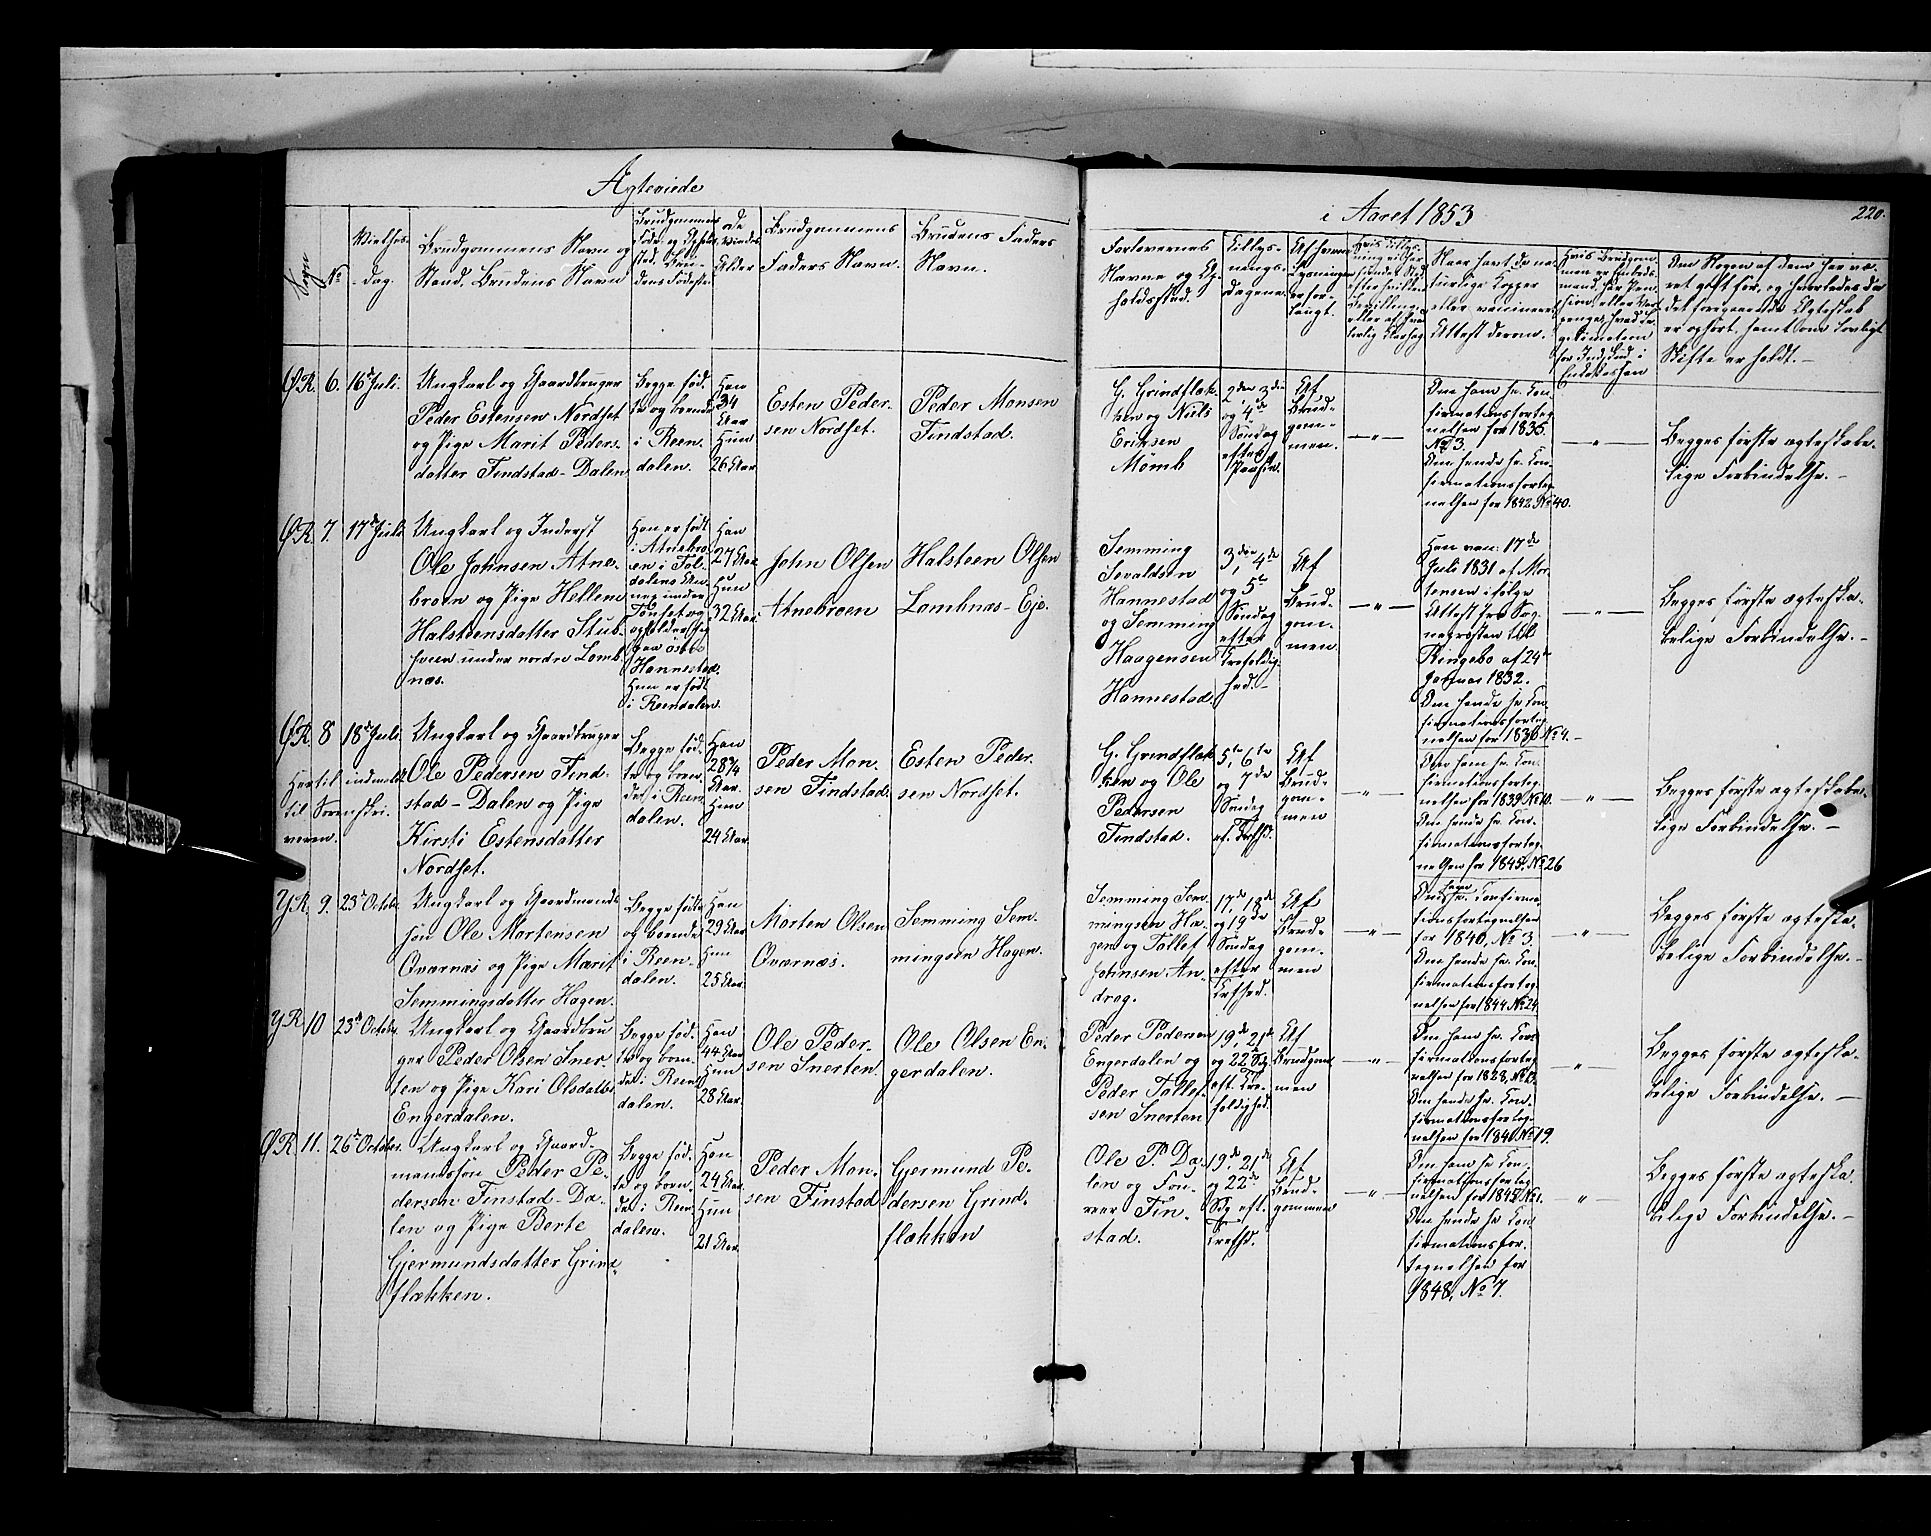 Ægteviede
i Aaret 1853
220.
Sogn
No
Vielses-
dag.
Brudgommens Navn og
Stand. Brudens Navn
Brudgommens
Føde- og Opholds-
sted. Bru-
dens Fødested
de
Viedes
Alder
Brudgommens
Faders Navn.
Brudens Faders
Navn.
Forlovernes
Navne og Op-
holdssted.
Tillys-
nings-
dagene.
Af hvem
Lysningen
er for-
langt.
Naar havt de na-
turlige Kopper
eller vaccineret
Attest derom.
Om Nogen af dem har væ-
ret gift før, og hvorledes da
det foregaaende Ægteskab
er ophørt, samt om lovligt
Skifte er holdt. –
ØR. 6. 16de Juli.
Ungkarl og Gaardbruger
Peder Estensen Nordset
og Pige Marit Peders-
datter Findstad-Dalen
Begge fød-
te og boende
i Reen-
dalen.
Han
34
Aar
Hun
26 Aar
Esten Peder-
sen Nordset.
Peder Monsen
Findstad.
G. Grindflæk-
ken og Niels
Eriksen
Mømb
2den 3die
og 4de
Søndag
efter
Paaske.
Af
Brud-
gom-
men.
— " —
Om ham se Con-
firmationsforteg-
nelsen for 1835.
No 3.
Om hende se Con-
firmationsforteg-
nelsen for 1842 No 40.
— " —
Begges første ægteskabe-
lige Forbindelse. –
ØR. 7. 17de Juli
Ungkarl og Inderst
Ole Johnsen Atne-
broen og Pige Hellem
Halsteensdatter Stub-
sveen under nordre Lomb-
næs.
Han er født
i Atnebro-
en i Fol-
dalens An-
nex under
Tønset og
opholder sig
paa østre
Hannestad.
Hun er født
i Reendalen.
Han
27 Aar
Hun
32 Aar
John Olsen
Atnebroen
Halsteen Olsen
Lombnæs-Eje.
Semming
Sevaldsen
Hannestad
og Semming
Haagensen
Hannestad.
3die, 4de
og 5te
Søndag
efter
Trefoldig-
hed. –
Af
Brud-
gom-
men
— " —
Han vac. 17de
Juli 1831 af Mor-
tensen ifølge
Attest fra Sog-
nepræsten til
Ringebo af 24de
Februar 1832.
Om hende se Con-
firmationsforteg-
nelsen for 1836 No 4. –
— " —
Begges første ægteska-
belige Forbindelse. –
ØR. 8 18de Juli
Hertil indmeldt
til Sorenskri-
veren.
Ungkarl og Gaardbruger
Ole Pedersen Find-
stad-Dalen og Pige
Kirsti Estensdatter
Nordset.
Begge fød-
te og boen-
de i Reen-
dalen.
Han
28 3/4
Aar.
Hun
24 Aar.
Peder Mon-
sen Findstad.
Esten Peder-
sen Nordset.
G. Grindflæk-
ken og Ole
Pedersen
Findstad.
5te, 6te
og 7de
Søndag
ef. Trefhd.
Af
Brud-
gom-
men
— " —
Om ham se Con-
firmationsforteg-
nelsen for 1839 No 10.
Om hende se Con-
firmationsforteg-
nelsen for 1845 No 26
— " —
Begges første ægteskabe-
lige Forbindelse. –
YR. 9. 23de Octobr.
Ungkarl og Gaardmands-
søn Ole Mortensen
Qværnæs og Pige Marit
Semmingsdatter Hagen.
Begge fødte
og boende
i Reen-
dalen.
Han
29 Aar
Hun
25 Aar.
Morten Olsen
Qværnæs.
Semming Sem-
mingsen Hagen.
Semming Sem-
mingsen Ha-
gen og Tollef
Johnsen An-
drag.
17de, 18de
og 19de
Søndag
efter
Trefhed.
Af
Brud-
gom-
men
— " —
Om ham se Confirma-
tionsfortegnelsen
for 1840, No 3.
Om hende se Con-
firmationsforteg-
nelsen for 1844 No 24.
— " —
Begges første ægteska-
belige Forbindelse. –
YR 10 23de Octobr.
Ungkarl og Gaardbru-
ger Peder Olsen Sner-
ten og Pige Kari Olsdatter
Engerdalen.
Begge fød-
te og boen-
de i Reen-
dalen.
Han
44 Aar
Hun
28 Aar.
Ole Peder-
sen Snerten.
Ole Olsen En-
gerdalen.
Peder Pedersen
Engerdalen og
Peder Tollef-
sen Snerten
19de, 21de
og 22de Sdg
eft. Tre-
foldighed.
Af
Brudgom-
men
— " —
Om ham se Con-
firmationsforteg-
nelsen for 1828,
Om hende se Con-
firmationsforteg-
nelsen for 1840 No 19.
— " —
Begges første ægteska-
belige Forbindelse. –
ØR. 11. 26de Octobr.
Ungkarl og Gaard-
mandssøn Peder Pe-
dersen Finstad-Da-
len og Pige Berte
Gjermundsdatter Grind-
flækken.
Begge fød-
te og boen-
de i Reen-
dalen.
Han
24 Aar.
Hun
21 Aar.
Peder Mon-
sen Finstad
Gjermund Pe-
dersen Grind-
flækken
Ole P. Da-
len og Fou-
ver Fin-
stad.
19de, 21de
og 22de
Sdg eft.
Trefhd.
Af
Brud-
gommen
— " —
Om ham se Con-
firmationsforteg-
nelsen for 1845 No 1.
Om hende se Con-
firmationsfor-
tegnelsen for
1848, No 7.
— " —
Begges første ægteska-
belige Forbindelse. –